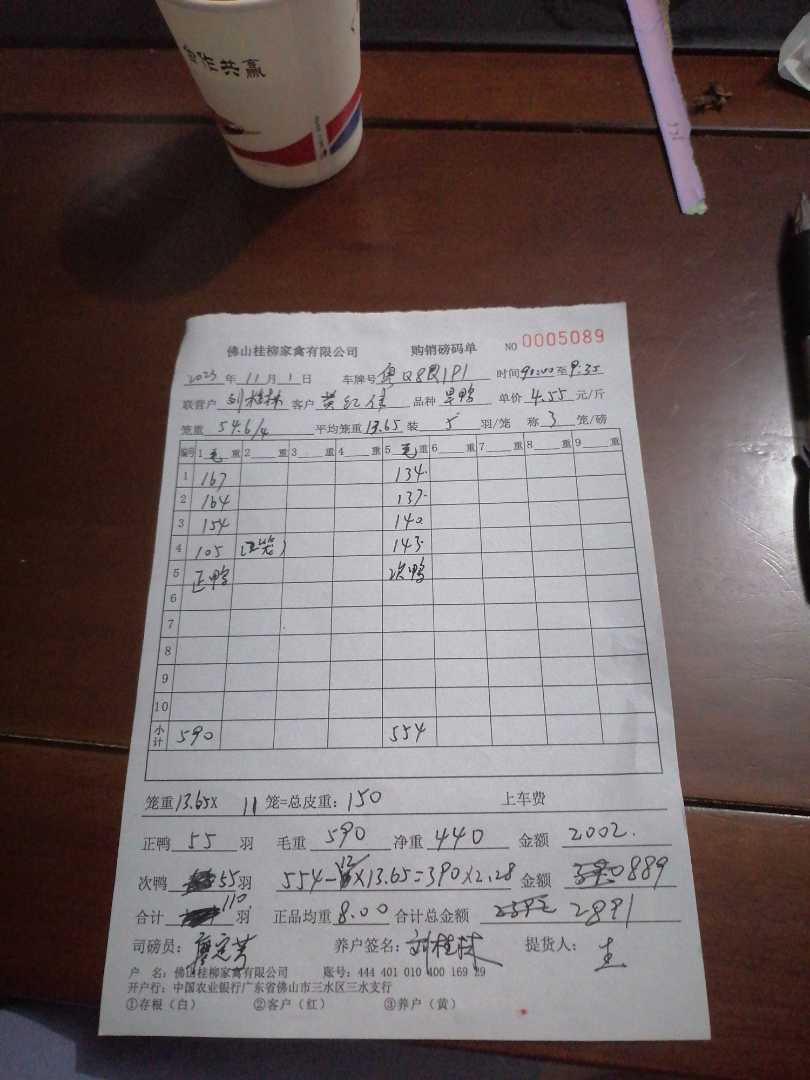 合作共赢
佛山桂柳家禽有限公司 购销磅码单 NO 0005089
2023 年 11 月 1 日 车牌号 粤Q8Q1P1 时间 至 9:35
联营户 刘桂林 客户 黄红 品种 旱鸭 单价 4.55 元/斤
笼重 54.6/4 平均笼重 13.65 装 5 羽/笼 称 3 笼/磅
编号 1 毛 重 2 重 3 重 4 重 5 毛 重 6 重 7 重 8 重 9 重
1 167 134
2 164 137
3 154 140
4 105 (2笼) 143
5 正鸭 次鸭
6
7
8
9
10
小计 590 554
笼重 13.65X 11 笼=总皮重: 150 上车费
正鸭 55 羽 毛重 590 净重 440 金额 2002.
次鸭 55 羽 554-12X13.65=390X2.28 金额 889
合计 110 羽 正品均重 8.00 合计总金额 2891
司磅员: 廖定芳 养户签名: 刘桂林 提货人:
户 名: 佛山桂柳家禽有限公司 账号: 444 401 010 400 169 29
开户行: 中国农业银行广东省佛山市三水区三水支行
①存根(白) ②客户(红) ③养户(黄)